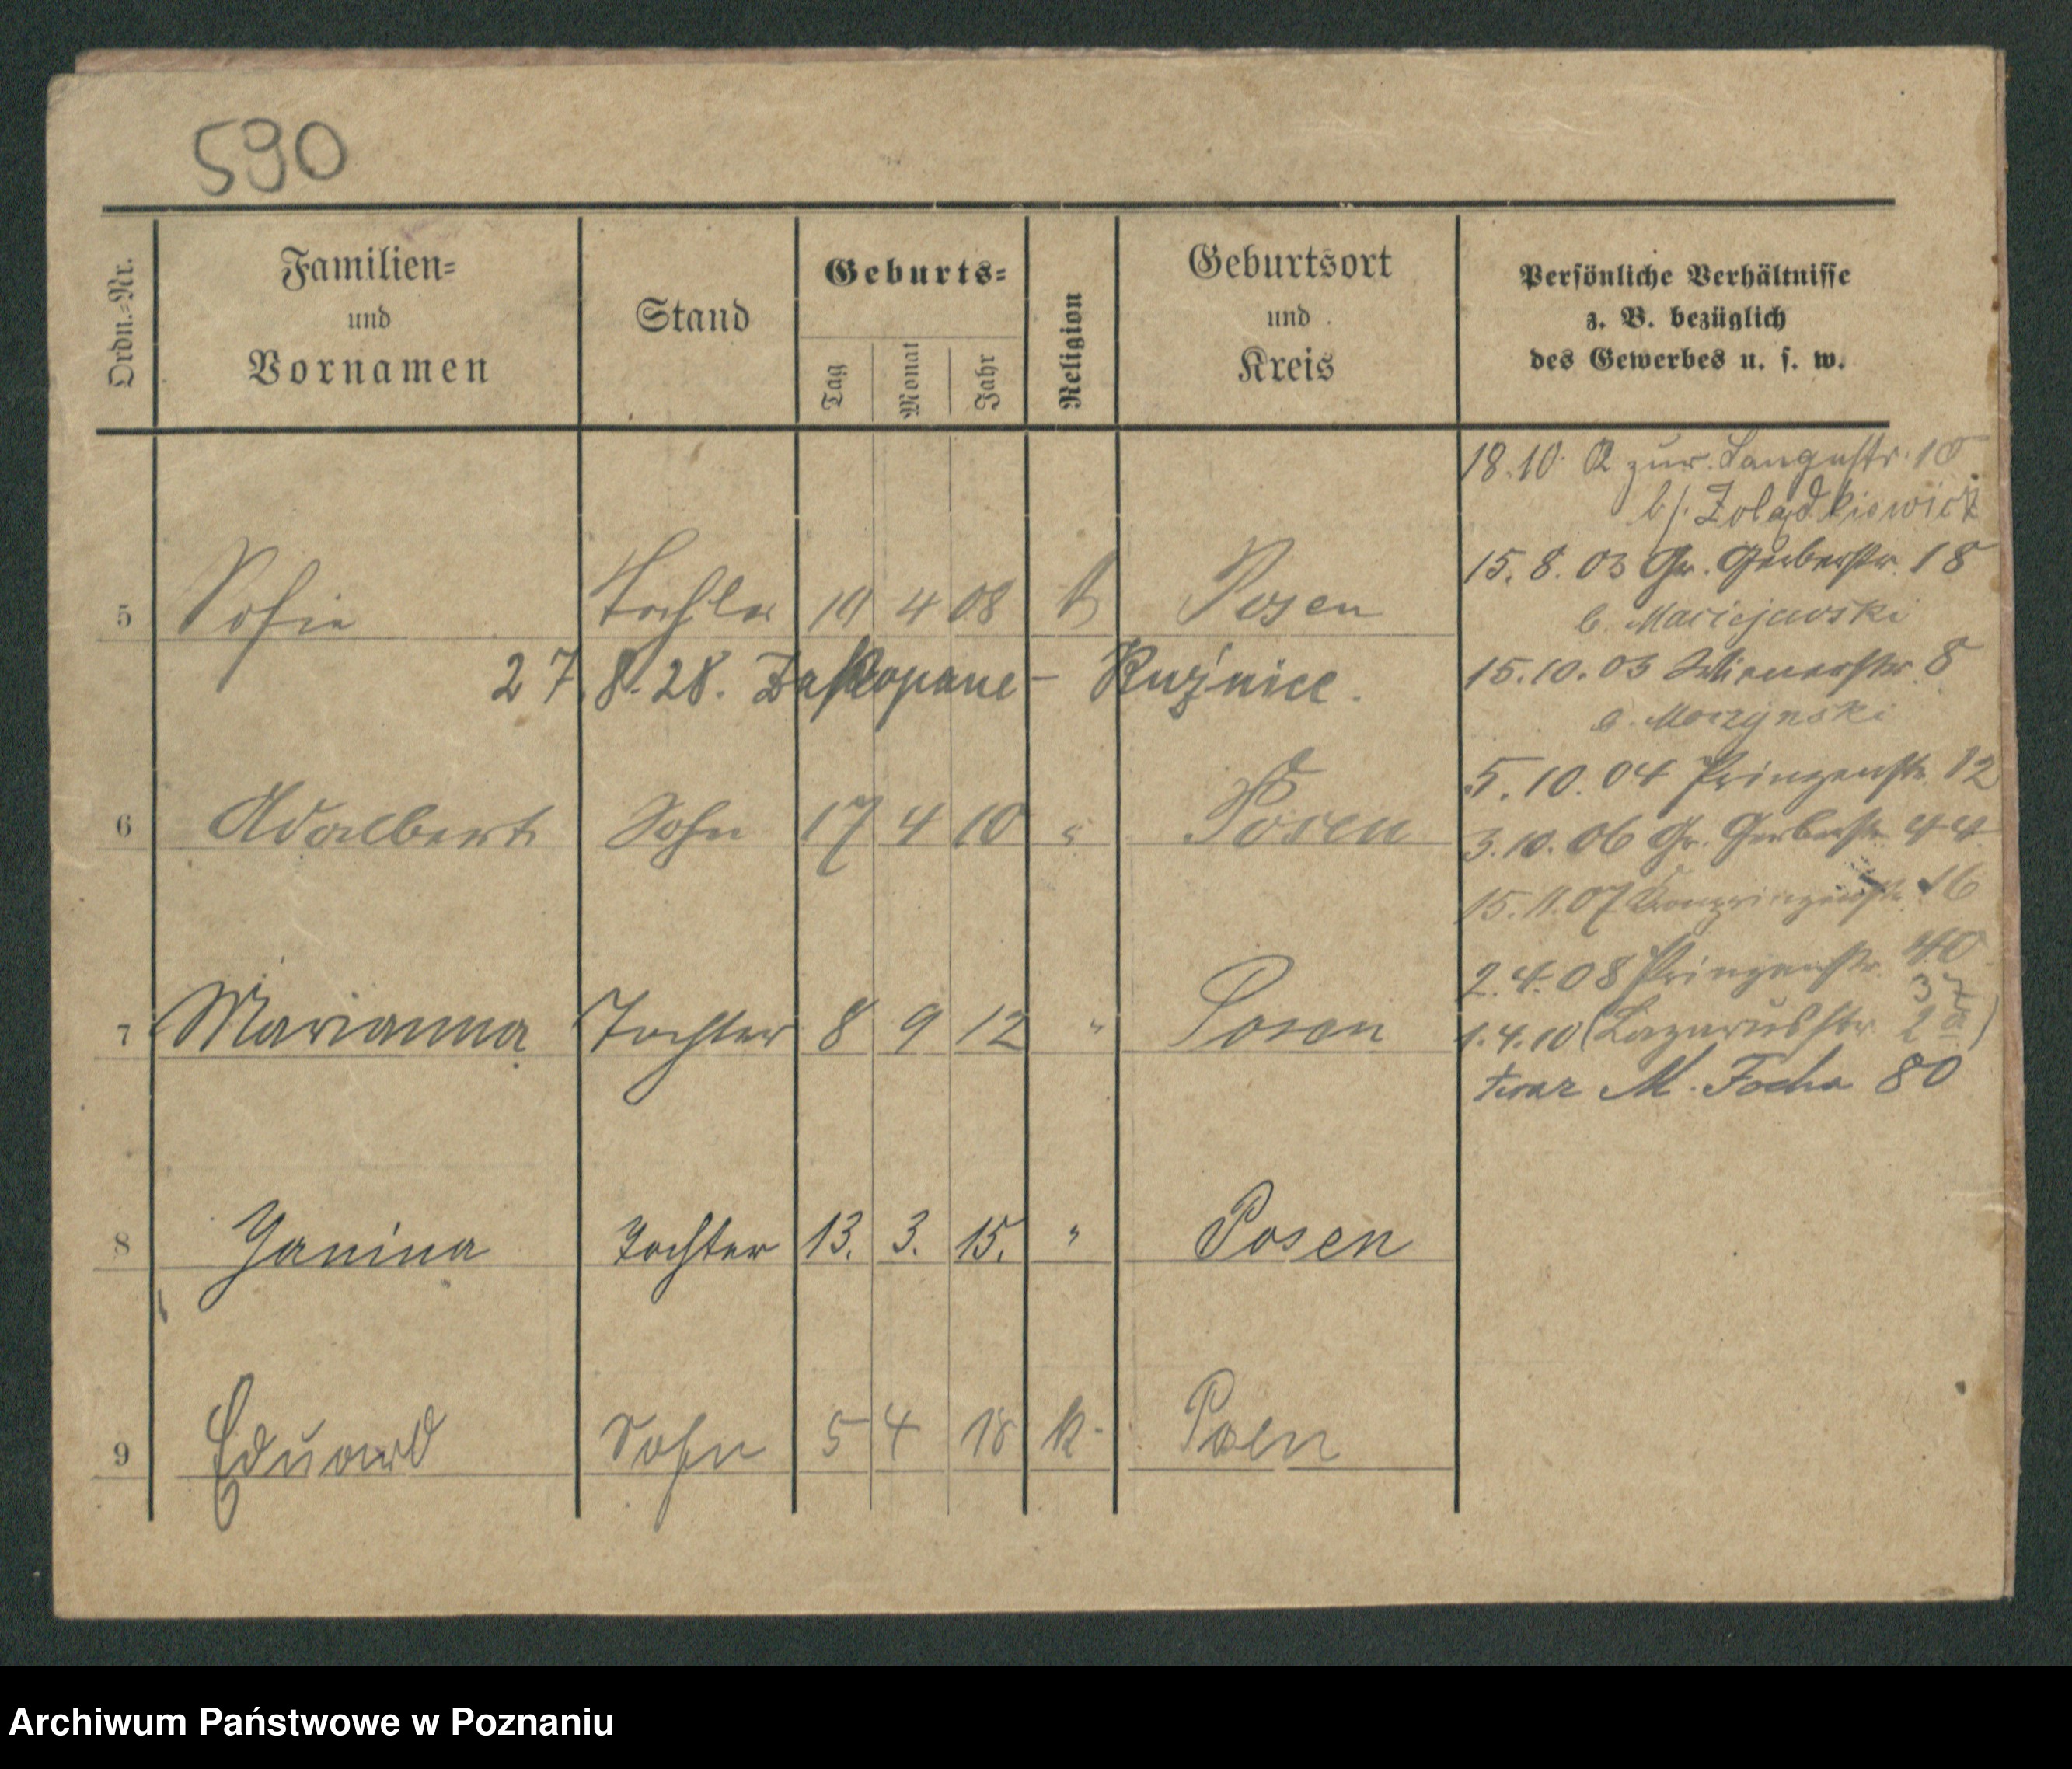 590
Ordn.-Nr.
Familien-
und
Vornamen
Stand
Geburts-
Tag
Monat
Jahr
Religion
Geburtsort
und
Kreis
Persönliche Verhältnisse
z. B. bezüglich
des Gewerbes u. s. w.
18.10. zur. Langestr. 10
b/. Zolądkiewicz
15. 8. 03 Gr. Gerberstr. 18
b. Maciejewski
15.10.03 8
5. 10. 04 Prinzenstr. 12
3. 10. 06 Gr. Gerberstr. 44
15. 11. 07 Kronprinzenstr. 16
2. 4. 08 Prinzenstr. 40
37
1. 4. 10 (Lazarusstr. 2a)
teraz M. Focha 80
5 Sofie Tochter 10 4 08 k Posen
27. 8. 28. Zakopane - Kuźnice.
6 Adalbert Sohn 17 4 10 " Posen
7 Marianna Tochter 8 9 12 " Posen
8 Janina Tochter 13. 3. 15. " Posen
9 Eduard Sohn 5 4 18 k. Posen
Archiwum Państwowe w Poznaniu